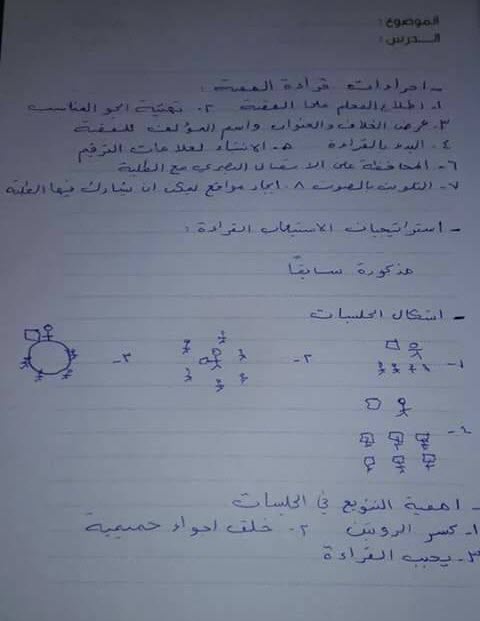 الموضوع :
الدرس :
- اجراءات قراءة القصة :
١- اطلاع المعلم على القصة ٢- تهيئة الجو المناسب
٣- عرض الغلاف والعنوان واسم المؤلف للقصة
٤- البدء بالقراءة ٥- الانتباه لعلامات الترقيم
٦- المحافظة على الاتصال البصري مع الطلبة
٧- التلوين بالصوت ٨- ايجاد مواقع ليمكن ان تشارك فيها الطلبة
- استراتيجيات الاستيعاب القراءة :
مذكورة سابقاً
- اشكال الجلسات
١- ٢- ٣-
٤-
- اهمية التنويع في الجلسات
١- كسر الروتين ٢- خلق اجواء حميمية
٣- يحبب القراءة